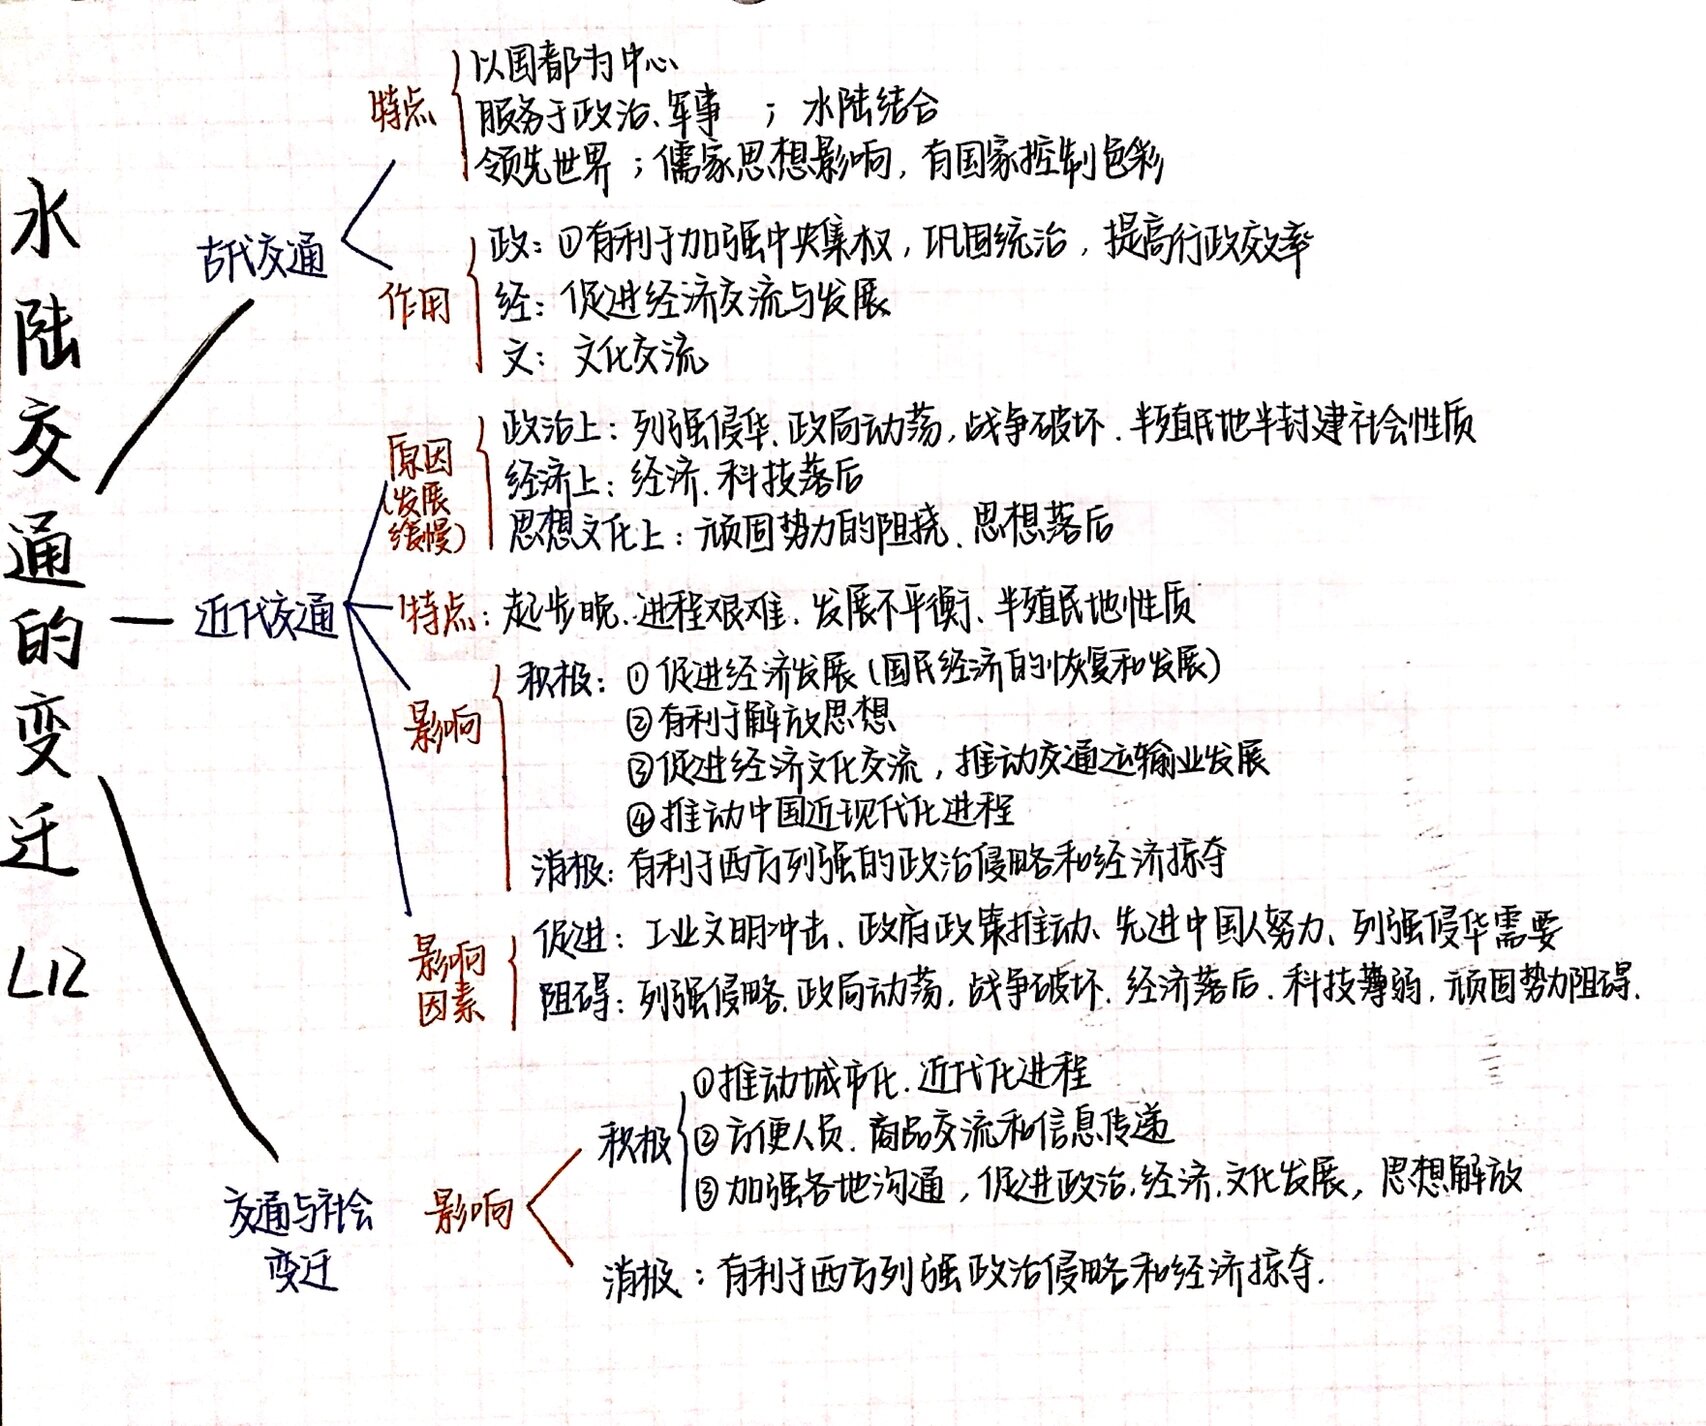 水陆交通的变迁 L12
古代交通
特点
以国都为中心
服务于政治、军事 ；水陆结合
领先世界；儒家思想影响，有国家控制色彩
作用
政：①有利于加强中央集权，巩固统治，提高行政效率
经：促进经济交流与发展
文：文化交流
近代交通
原因
(发展
缓慢)
政治上：列强侵华、政局动荡，战争破坏、半殖民地半封建社会性质
经济上：经济、科技落后
思想文化上：顽固势力的阻挠、思想落后
特点：起步晚、进程艰难、发展不平衡、半殖民地性质
影响
积极：①促进经济发展(国民经济的恢复和发展)
②有利于解放思想
③促进经济文化交流，推动交通运输业发展
④推动中国近现代化进程
消极：有利于西方列强的政治侵略和经济掠夺
影响
因素
促进：工业文明冲击、政府政策推动、先进中国人努力、列强侵华需要
阻碍：列强侵略、政局动荡，战争破坏、经济落后、科技薄弱，顽固势力阻碍.
交通与社会
变迁
影响
积极
①推动城市化、近代化进程
②方便人员、商品交流和信息传递
③加强各地沟通，促进政治、经济、文化发展，思想解放
消极：有利于西方列强政治侵略和经济掠夺.